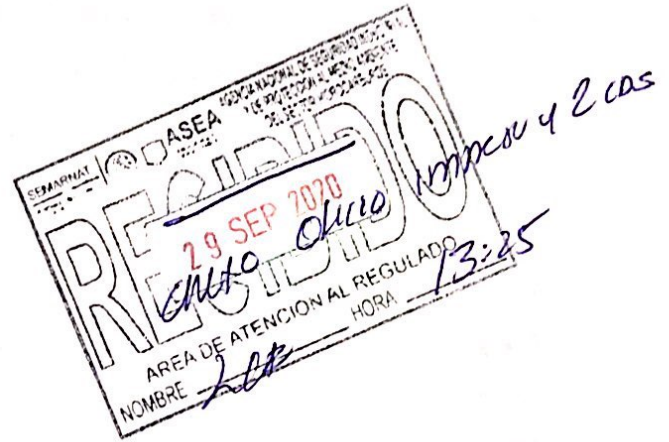 SEMARNAT ASEA AGENCIA NACIONAL DE SEGURIDAD INDUSTRIAL
Y DE PROTECCIÓN AL MEDIO AMBIENTE
DEL SECTOR HIDROCARBUROS
RECIBIDO
29 SEP 2020
oficio y 2 CDs
AREA DE ATENCION AL REGULADO
NOMBRE HORA 13:25